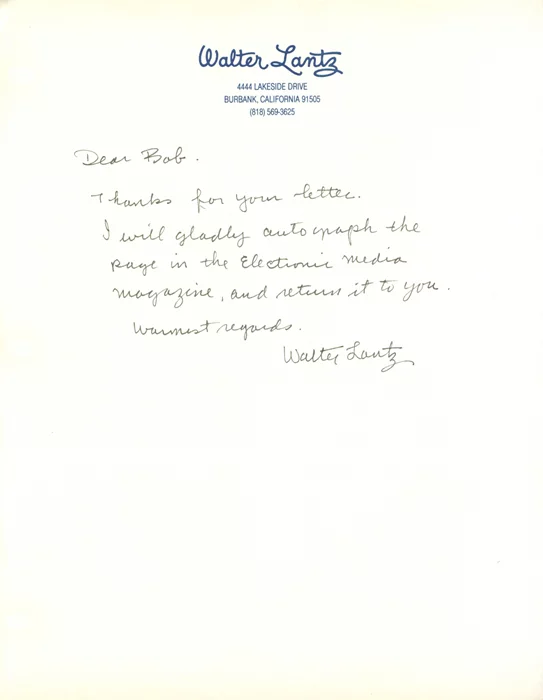 Walter Lantz
4444 LAKESIDE DRIVE
BURBANK, CALIFORNIA 91505
(818) 569-3625
Dear Bob.
Thanks for your letter.
I will gladly autograph the
page in the Electronic media
magazine, and return it to you.
Warmest regards.
Walter Lantz